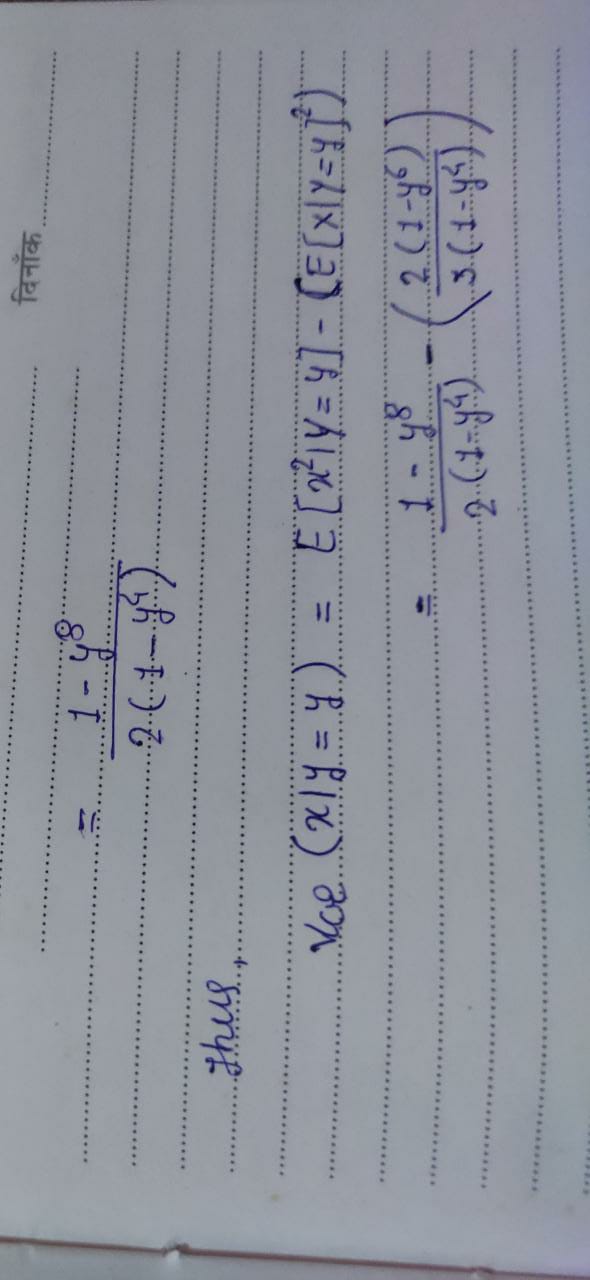 दिनाँक
= \frac{1 - y^8}{2(1 - y^4)}
Thus,
Var (x|y = y) = E[x²|Y = y] - (E[X|Y=y]²)
= \frac{1 - y^8}{2(1-y^4)} - \left(\frac{2(1-y^6)}{3(1-y^4)}\right)